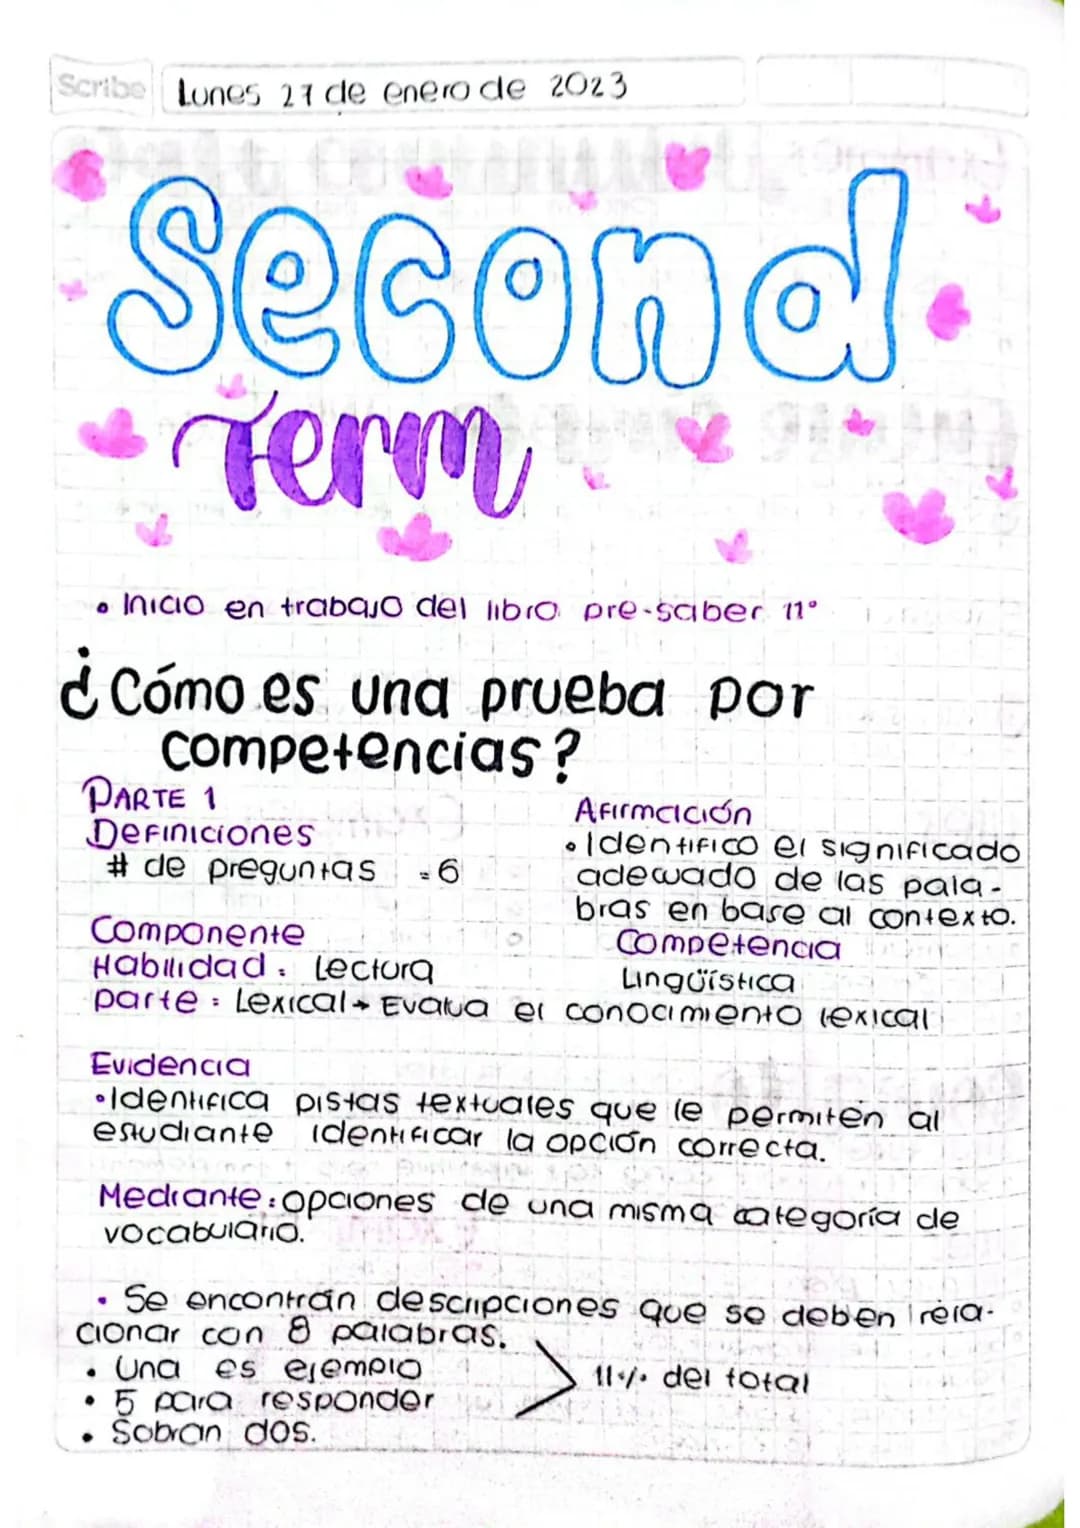 Scribe
Lunes 27 de enero de 2023
Second
Term
• Inicio en trabajo del libro pre-saber 11°
¿Cómo es una prueba por
competencias?
PARTE 1
Definiciones
# de preguntas = 6
Afirmación
• Identifico el significado
adecuado de las pala-
bras en base al contexto.
Componente
Habilidad: Lectura
Competencia
Lingüística
parte: Lexical → Evalua el conocimiento lexical
Evidencia
• Identifica pistas textuales que le permiten al
estudiante identificar la opción correcta.
Mediante: opciones de una misma categoría de
vocabulario.
• Se encontrán descripciones que se deben rela-
cionar con 8 palabras.
• Una es ejemplo
• 5 para responder
• Sobran dos.
11% del total